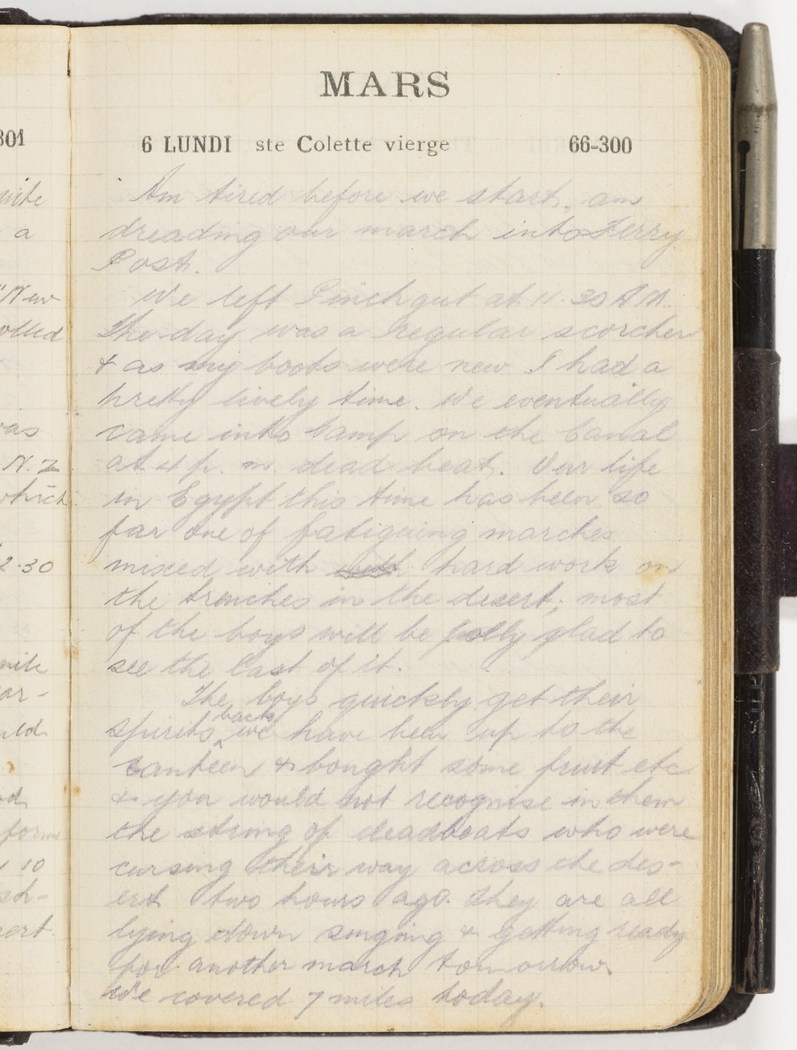 MARS
6 LUNDI ste Colette vierge 66-300
Am tired before we start, am
dreading our march into Ferry
Post.
We left Pinchgut at 11.30 A.M.
The day was a regular scorcher
& as my boots were new I had a
pretty lively time. We eventually
came into Camp on the Canal
at 4 p. m. dead beat. Our life
in Egypt this time has been so
far one of fatiguing marches
mixed with hard work on
the trenches in the desert; most
of the boys will be jolly glad to
see the last of it.
The boys quickly get their
spirits back, we have been up to the
canteen & bought some fruit etc
& you would not recognise in them
the string of deadbeats who were
cursing their way across the des-
ert two hours ago. They are all
lying down singing & getting ready
for another march tomorrow
We covered 7 miles today.
301
a
"New
was
N. Z
which
2.30
10